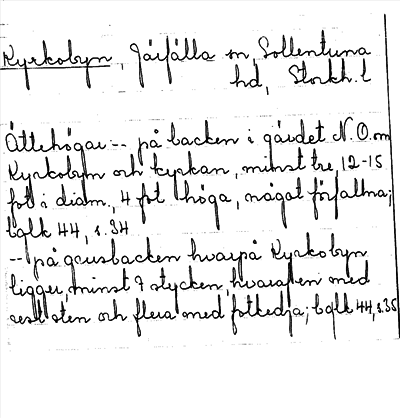 Kyrkobyn, Järfälla sn, Sollentuna
hd, Stockh. l
Ättehögar -- på backen i gärdet N.O. om
Kyrkobyn och kyrkan, minst tre, 12-15
fot i diam., 4 fot höga, något förfallna;
bqlk 44, s. 34
-- på grusbacken hvarpå Kyrkobyn
ligger, minst 7 stycken, hvaraf en med
rest sten och flera med fotkedja; bqlk 44, s. 35